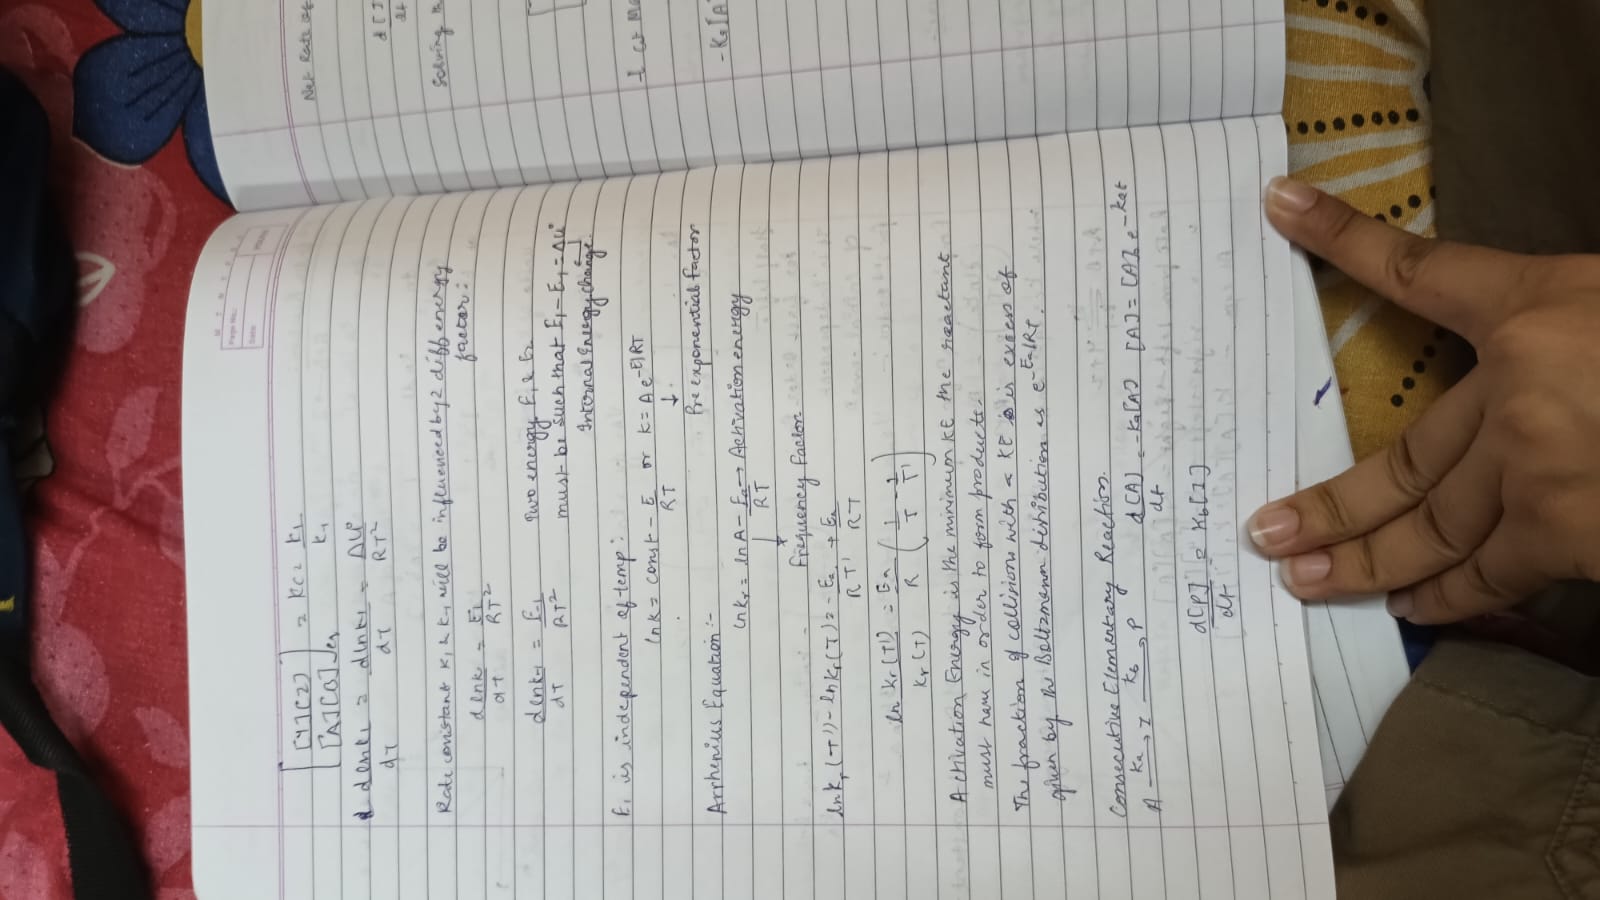 Page No.:
Date:
[Y][Z] = Kc = k1
[A][B] eq k-1
dlnk1 - dlnk-1 = ΔU°
dT dT RT²
Rate constant K1 & K-1 will be influenced by 2 diff energy
factor:
dlnk1 = E1
dT RT²
Two energy E1 & E2
dlnk-1 = E-1
dT RT²
must be such that E1 - E-1 = ΔU°
Internal Energy change.
E1 is independent of temp:
lnk = const - E or k = A e^-E/RT
RT
Pre exponential Factor
Arrhenius Equation :-
lnkr = lnA - Ea → Activation energy
RT
Frequency Factor
lnkr(T') - lnkr(T) = - Ea + Ea
RT' RT
ln kr(T') = Ea ( 1 - 1 )
kr(T) R T T'
Activation Energy is the minimum KE the reactant
must have in order to form products.
The fraction of collisions with a KE is excess of
given by the Boltzmann distribution as e^-Ea/RT.
Consecutive Elementary Reaction.
A ka→ I kb→ P d[A] = -ka[A] [A] = [A]0 e^-kat
dt
d[P] = Kb[I]
dt
Net Rate of
d[I]
dt
Solving
-Ka[A]